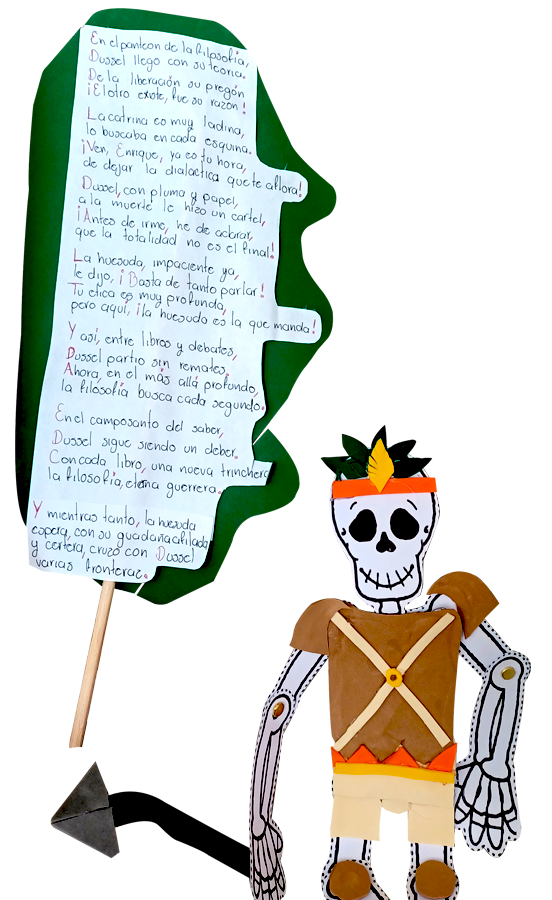 En el panteon de la filosofía,
Dussel llego con su teoria.
De la liberación su pregón
¡El otro existe, fue su razón!
La catrina es muy ladina,
lo buscaba en cada esquina.
¡Ven, Enrique, ya es tu hora,
de dejar la dialáctica que te aflora!
Dussel, con pluma y papel,
a la muerte le hizo un cartel,
¡Antes de irme, he de aclarar,
que la totalidad no es el final!
La huesuda, impaciente ya,
le dijo, ¡Basta de tanto parlar!
Tu etica es muy profunda,
pero aquí, ¡la huesuda es la que manda!
Y así, entre libros y debates,
Dussel partio sin remates,
Ahora, en el más allá profundo,
la filósofia busca cada segundo.
En el camposanto del saber,
Dussel sigue siendo un deber.
Con cada libro, una nueva trinchera
la filosofía, eterna guerrera.
Y mientras tanto, la huesuda
espera, con su guadaña afilada
y certera, cruzo con Dussel
varias fronteras.